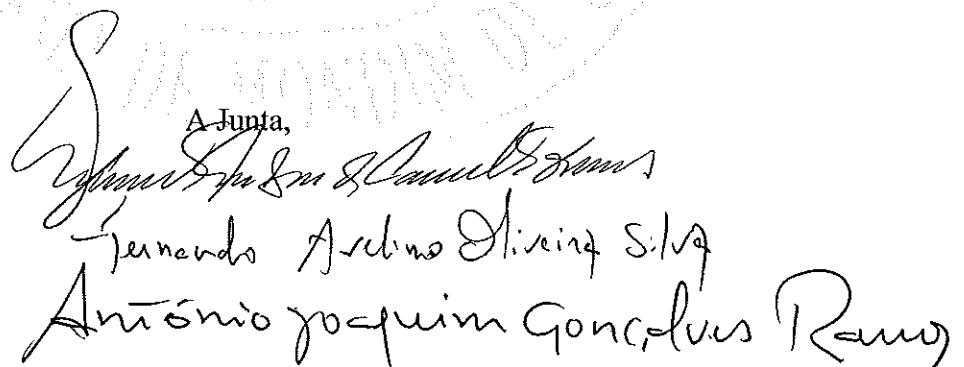 A Junta,
Fernando Avelino Oliveira Silva
António Joaquim Gonçalves Ramos